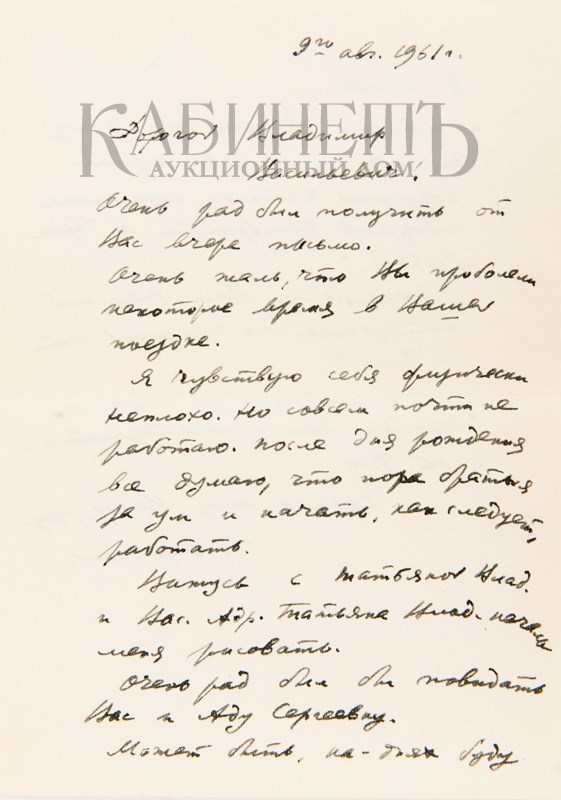 9го авг. 1961 г.
КАБИНЕТЪ
АУКЦИОННЫЙ ДОМ
Дорогой Владимир
Васильевич!
Очень рад был получить от
Вас вчера письмо.
Очень жаль, что Вы проболели
некоторое время в Вашей
поездке.
Я чувствую себя физически
неплохо. Но совсем почти не
работаю. После дня рождения
все думаю, что пора браться
за ум и начать, как следует,
работать.
Вижусь с Татьяной Влад.
и Вас. Адр. Татьяна Влад. начала
меня рисовать.
Очень рад был бы повидать
Вас и Аду Сергеевну.
Может быть, на-днях буду